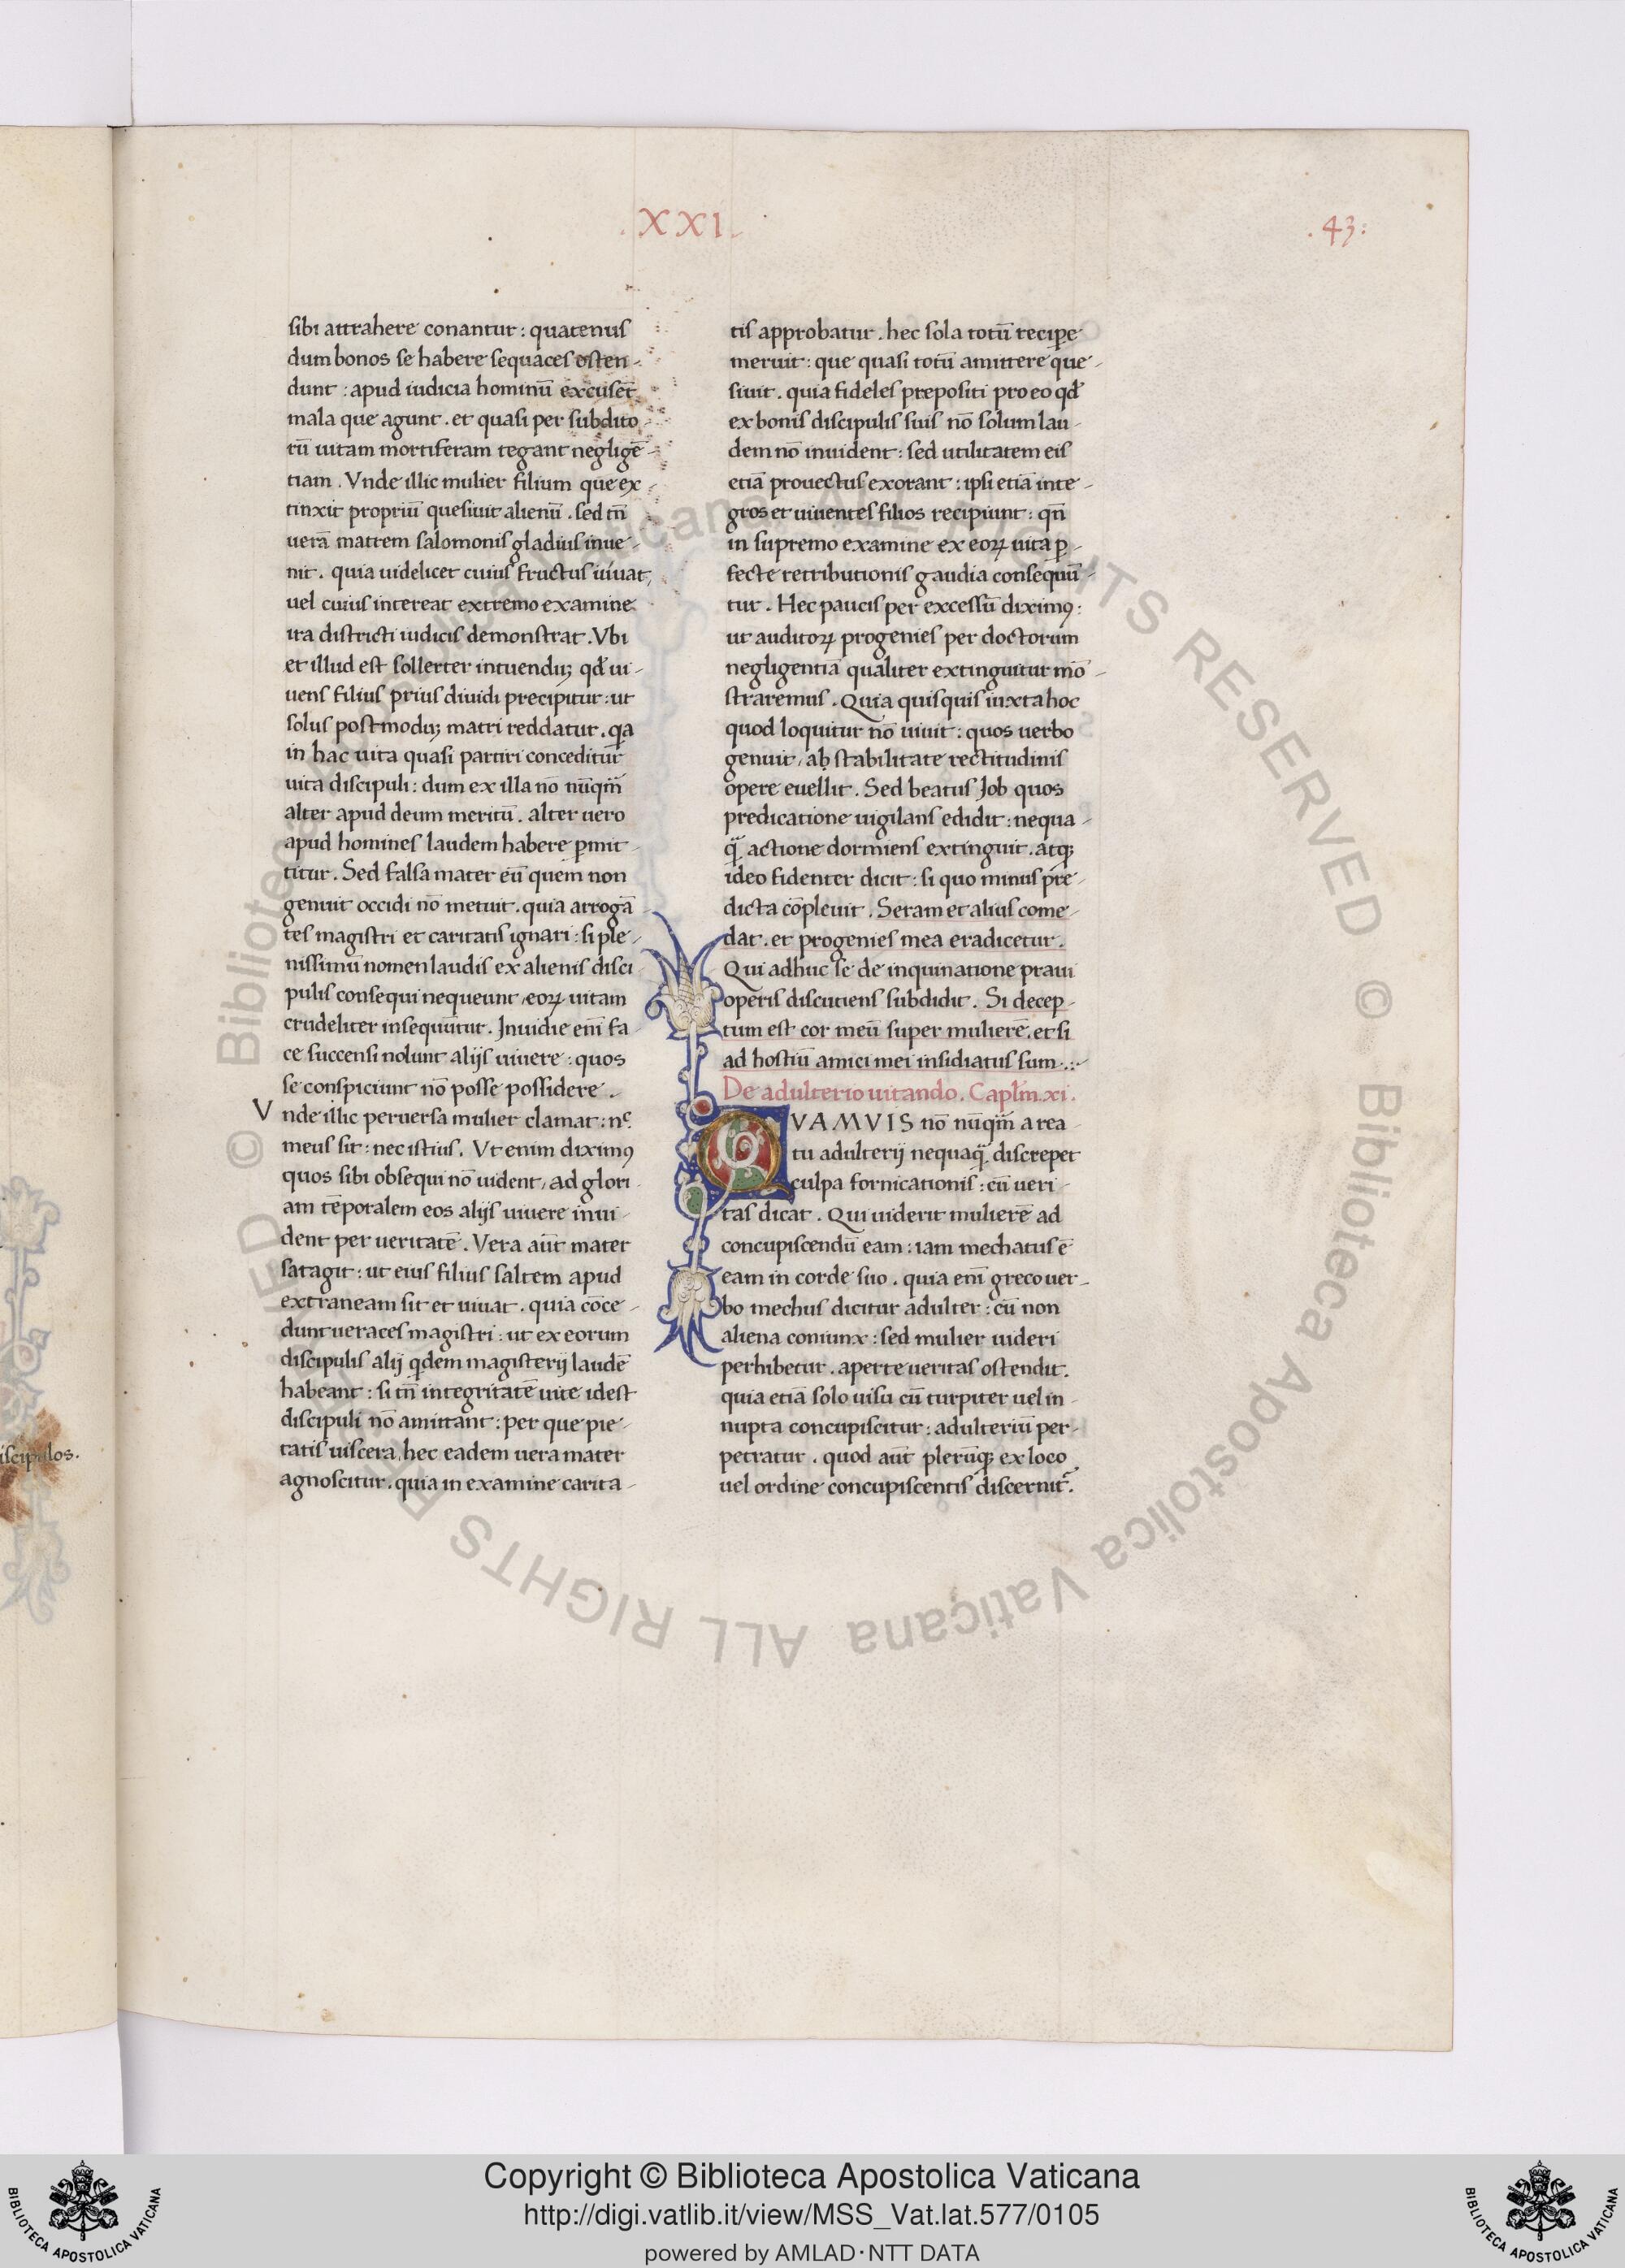 .XXI.
.43:
sibi attrahere conantur : quatenus
dum bonos se habere sequaces osten-
dunt : apud iudicia hominū excusēt
mala que agunt . et quasi per subdito-
rū uitam mortiferam tegant negligē-
tiam . Vnde illic mulier filium que ex-
tinxit propriū quesiuit alienū . sed tn̄
uerā matrem salomonis gladius inue-
nit . quia uidelicet cuius fructus uiuat,
uel cuius intereat extremo examine
ira districti iudicis demonstrat . Vbi
et illud est sollerter intuenduꝫ qd̄ ui-
uens filius prius diuidi precipitur : ut
solus postmoduꝫ matri reddatur . qa
in hac uita quasi partiri conceditur
uita discipuli : dum ex illa nō nūqm̄
alter apud deum meritū . alter uero
apud homines laudem habere ꝑmit-
titur . Sed falsa mater eū quem non
genuit occidi nō metuit . quia arrogā
tes magistri et caritatis ignari : si ple-
nissimū nomen laudis ex alienis disci
pulis consequi nequeunt, eoꝝ uitam
crudeliter insequūtur . Inuidie enī fa-
ce succensi nolunt alijs uiuere : quos
se conspiciunt nō posse possidere .
Vnde illic peruersa mulier clamat : nc
meus sit : nec istius . Vt enim diximꝰ
quos sibi obsequi nō uident, ad glori-
am tēporalem eos alijs uiuere inui-
dent per ueritatē . Vera aūt mater
satagit : ut eius filius saltem apud
extraneam sit et uiuat . quia cōce-
dunt ueraces magistri : ut ex eorum
discipulis alij qdem magisterij laudē
habeant : si tn̄ integritatē uite idest
discipuli nō amittant : per que pie-
tatis uiscera, hec eadem uera mater
agnoscitur . quia in examine carita-
tis approbatur . hec sola totū recipe
meruit : que quasi totū amittere que-
siuit . quia fideles prepositi pro eo qd̄
ex bonis discipulis suis nō solum lau-
dem nō inuident : sed utilitatem eis
etiā prouectus exorant : ipsi etiā inte-
gros et uiuentes filios recipiunt : qn̄
in supremo examine ex eoꝝ uita ꝑ-
fecte retributionis gaudia consequū-
tur . Hec paucis per excessū diximꝰ :
ut auditoꝝ progenies per doctorum
negligentiā qualiter extinguitur mō-
straremus . Quia quisquis iuxta hoc
quod loquitur nō uiuit : quos uerbo
genuit, ab stabilitate rectitudinis
opere euellit . Sed beatus Job quos
predicatione uigilans edidit : nequa-
q̄ actione dormiens extinguit . atqꝫ
ideo fidenter dicit : si quo minus pre-
dicta cōpleuit . Seram et alius come-
dat . et progenies mea eradicetur .
Qui adhuc se de inquinatione praui
operis discutiens subdidit . Si decep-
tum est cor meū super mulierē . et si
ad hostiū amici mei insidiatus sum . : ~
De adulterio uitando . Caplm̄ . xi .
QVAMVIS nō nūqm̄ a rea-
tu adulterij nequaq̄ . discrepet
culpa fornicationis : cū ueri-
tas dicat . Qui uiderit mulierē ad
concupiscendū eam : iam mechatus ē
eam in corde suo . quia enī greco uer-
bo mechus dicitur adulter : cū non
aliena coniunx : sed mulier uideri
perhibetur . aperte ueritas ostendit .
quia etiā solo uisu cū turpiter uel in-
nupta concupiscitur : adulteriū per-
petratur . quod aūt plerūqꝫ ex loco
uel ordine concupiscentis discernit̄ .
iscipulos .
© Biblioteca Apostolica Vaticana ALL RIGHTS RESERVED © Biblioteca Apostolica Vaticana ALL RIGHTS RESERVED
Copyright © Biblioteca Apostolica Vaticana
http://digi.vatlib.it/view/MSS_Vat.lat.577/0105
powered by AMLAD·NTT DATA
BIBLIOTECA APOSTOLICA VATICANA
BIBLIOTECA APOSTOLICA VATICANA